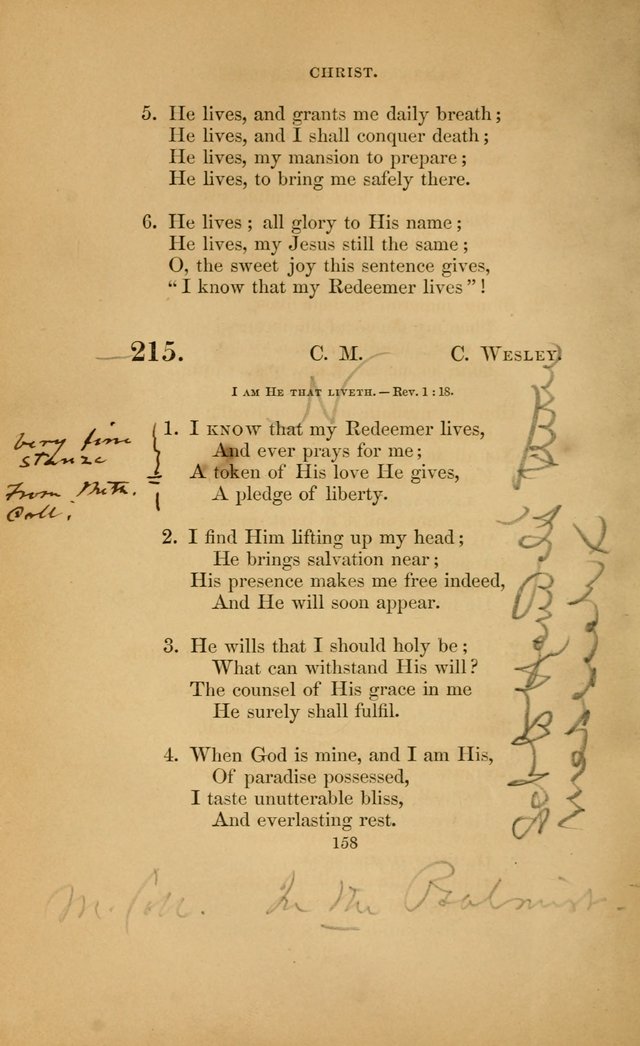 CHRIST.
5. He lives, and grants me daily breath;
He lives, and I shall conquer death;
He lives, my mansion to prepare;
He lives, to bring me safely there.
6. He lives; all glory to His name;
He lives, my Jesus still the same;
O, the sweet joy this sentence gives,
"I know that my Redeemer lives"!
215. C. M. C. WESLEY.
I AM HE THAT LIVETH.—REV. 1:18.
N
1. I KNOW that my Redeemer lives,
And ever prays for me;
A token of His love He gives,
A pledge of liberty.
very fine
stanza
From Meth.
Coll.
2. I find Him lifting up my head;
He brings salvation near;
His presence makes me free indeed,
And He will soon appear.
3. He wills that I should holy be;
What can withstand His will?
The counsel of His grace in me
He surely shall fulfil.
4. When God is mine, and I am His,
Of paradise possessed,
I taste unutterable bliss,
And everlasting rest.
158
M. Coll. In the Psalmist.